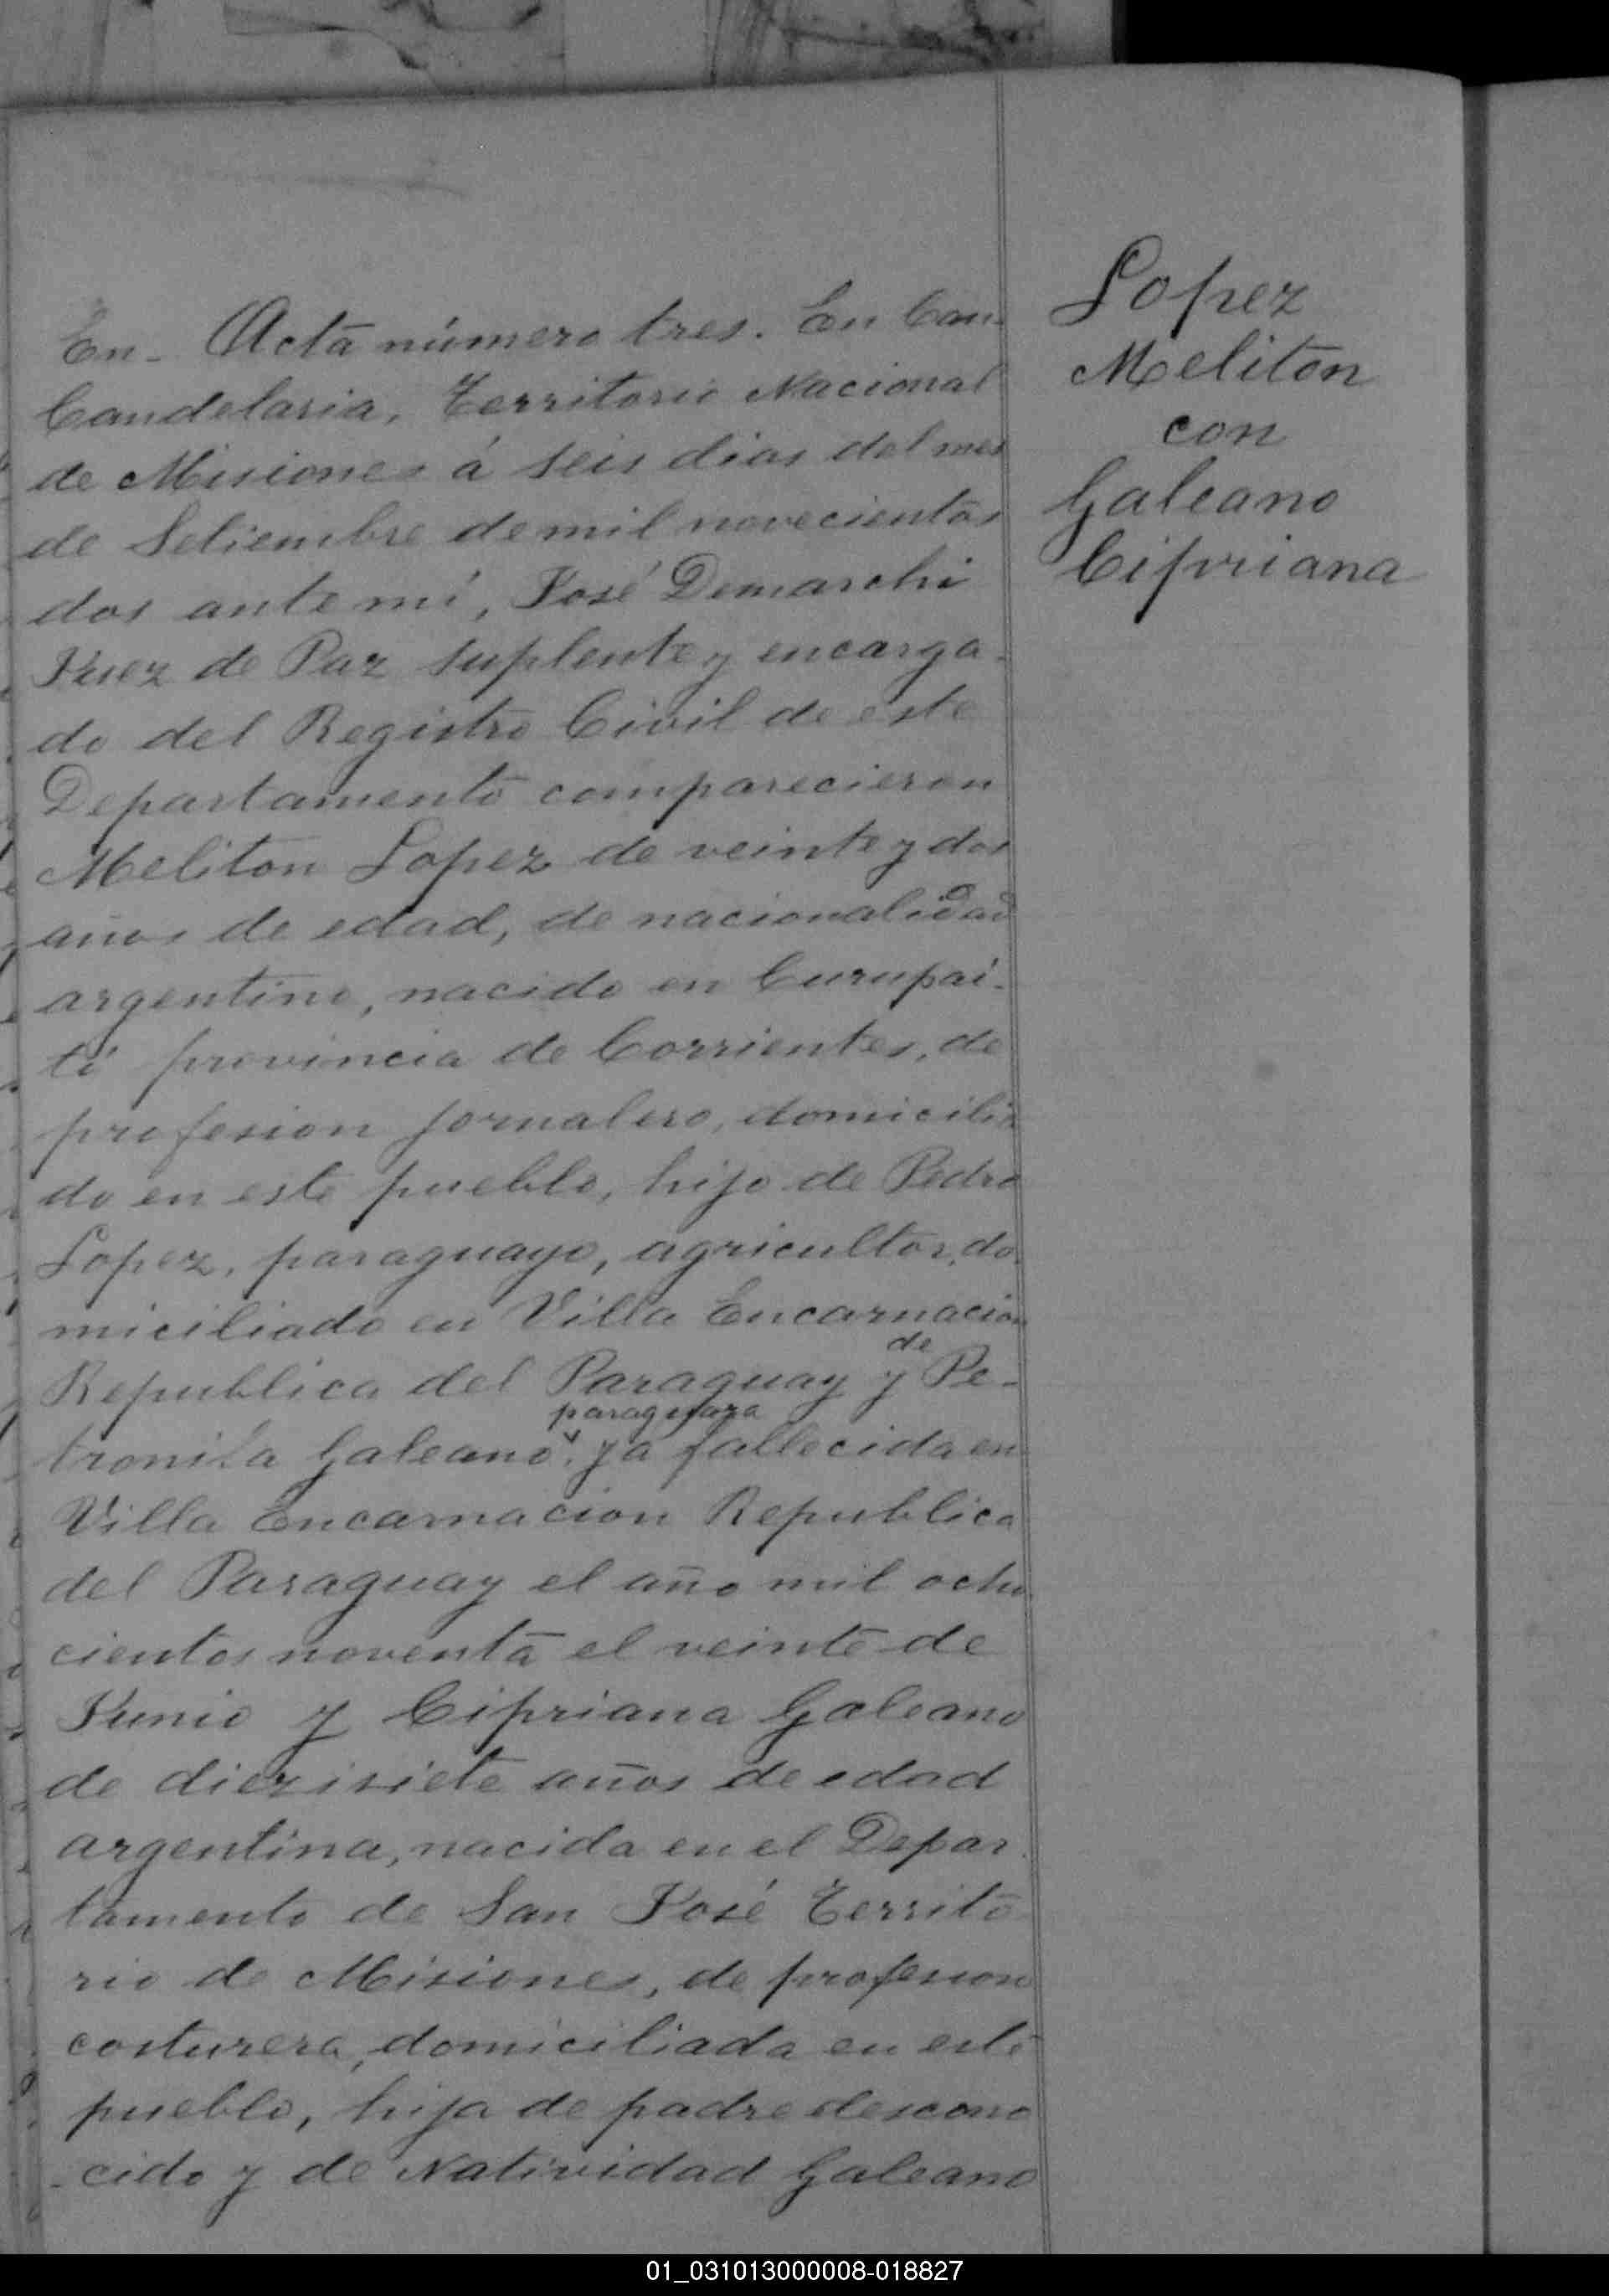 En- Acta número tres. En Can-
Candelaria, Territorio Nacional
de Misiones á seis dias del mes
de Setiembre de mil novecientos
dos ante mi, José Demarchi
Juez de Paz suplente y encarga-
do del Registro Civil de este
Departamento comparecieron
Meliton Lopez de veinte y dos
años de edad, de nacionalidad
argentino, nacido en Curupai-
tí provincia de Corrientes, de
profesion jornalero, domicilia
do en este pueblo, hijo de Pedro
Lopez, paraguayo, agricultor, do-
miciliado en Villa Encarnacion
de
Republica del Paraguay y Pe-
paraguaya
tronila Galeano, ya fallecida en
Villa Encarnacion Republica
del Paraguay el año mil ocho
cientos noventa el veinte de
Junio y Cipriana Galeano
de diezisiete años de edad
argentina, nacida en el Depar-
tamento de San José Territo
rio de Misiones, de profesion
costurera, domiciliada en este
pueblo, hija de padre descono
cido y de Natividad Galeano
Lopez
Meliton
con
Galeano
Cipriana
01_031013000008-018827